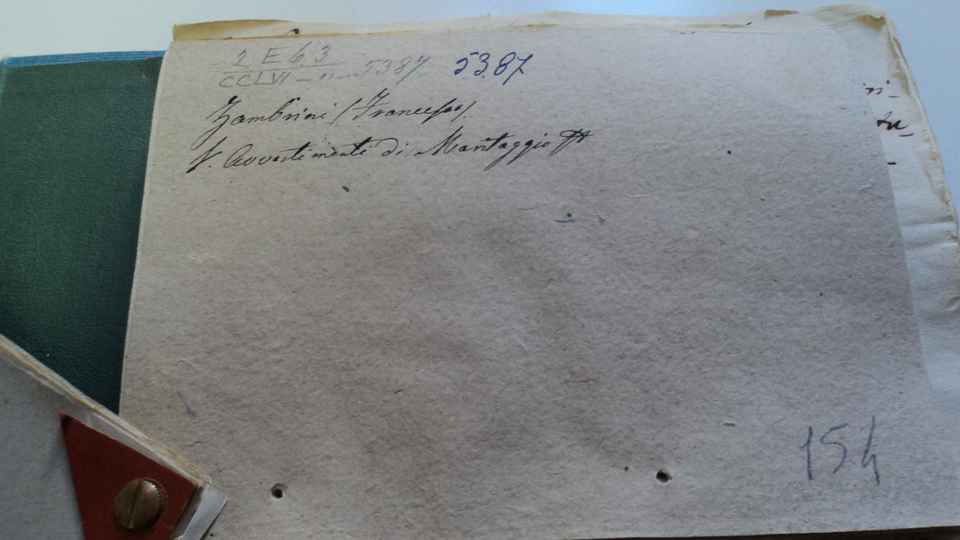 2 E 6 3
CCLVI - 5387 5387
Zambrini (Francesco)
V. Avvertimenti di Maritaggio
154
ri-